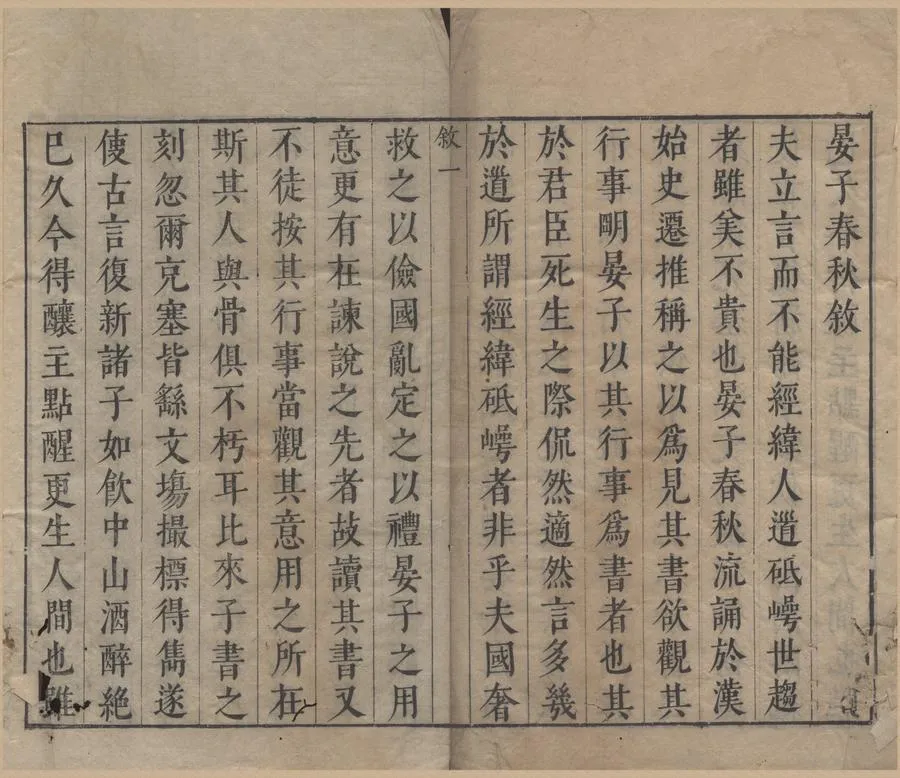 晏子春秋敘
夫立言而不能經緯人道砥㟧世趨
者雖美不貴也晏子春秋流誦於漢
始史遷推稱之以爲見其書欲觀其
行事明晏子以其行事爲書者也其
於君臣死生之際侃然適然言多幾
於道所謂經緯砥㟧者非乎夫國奢
敘一
救之以儉國亂定之以禮晏子之用
意更有在諫說之先者故讀其書又
不徒按其行事當觀其意用之所在
斯其人與骨俱不朽耳比來子書之
刻忽爾充塞皆繇文場撮標得雋遂
使古言復新諸子如飲中山酒醉絕
已久今得釀主點醒更生人間也雖